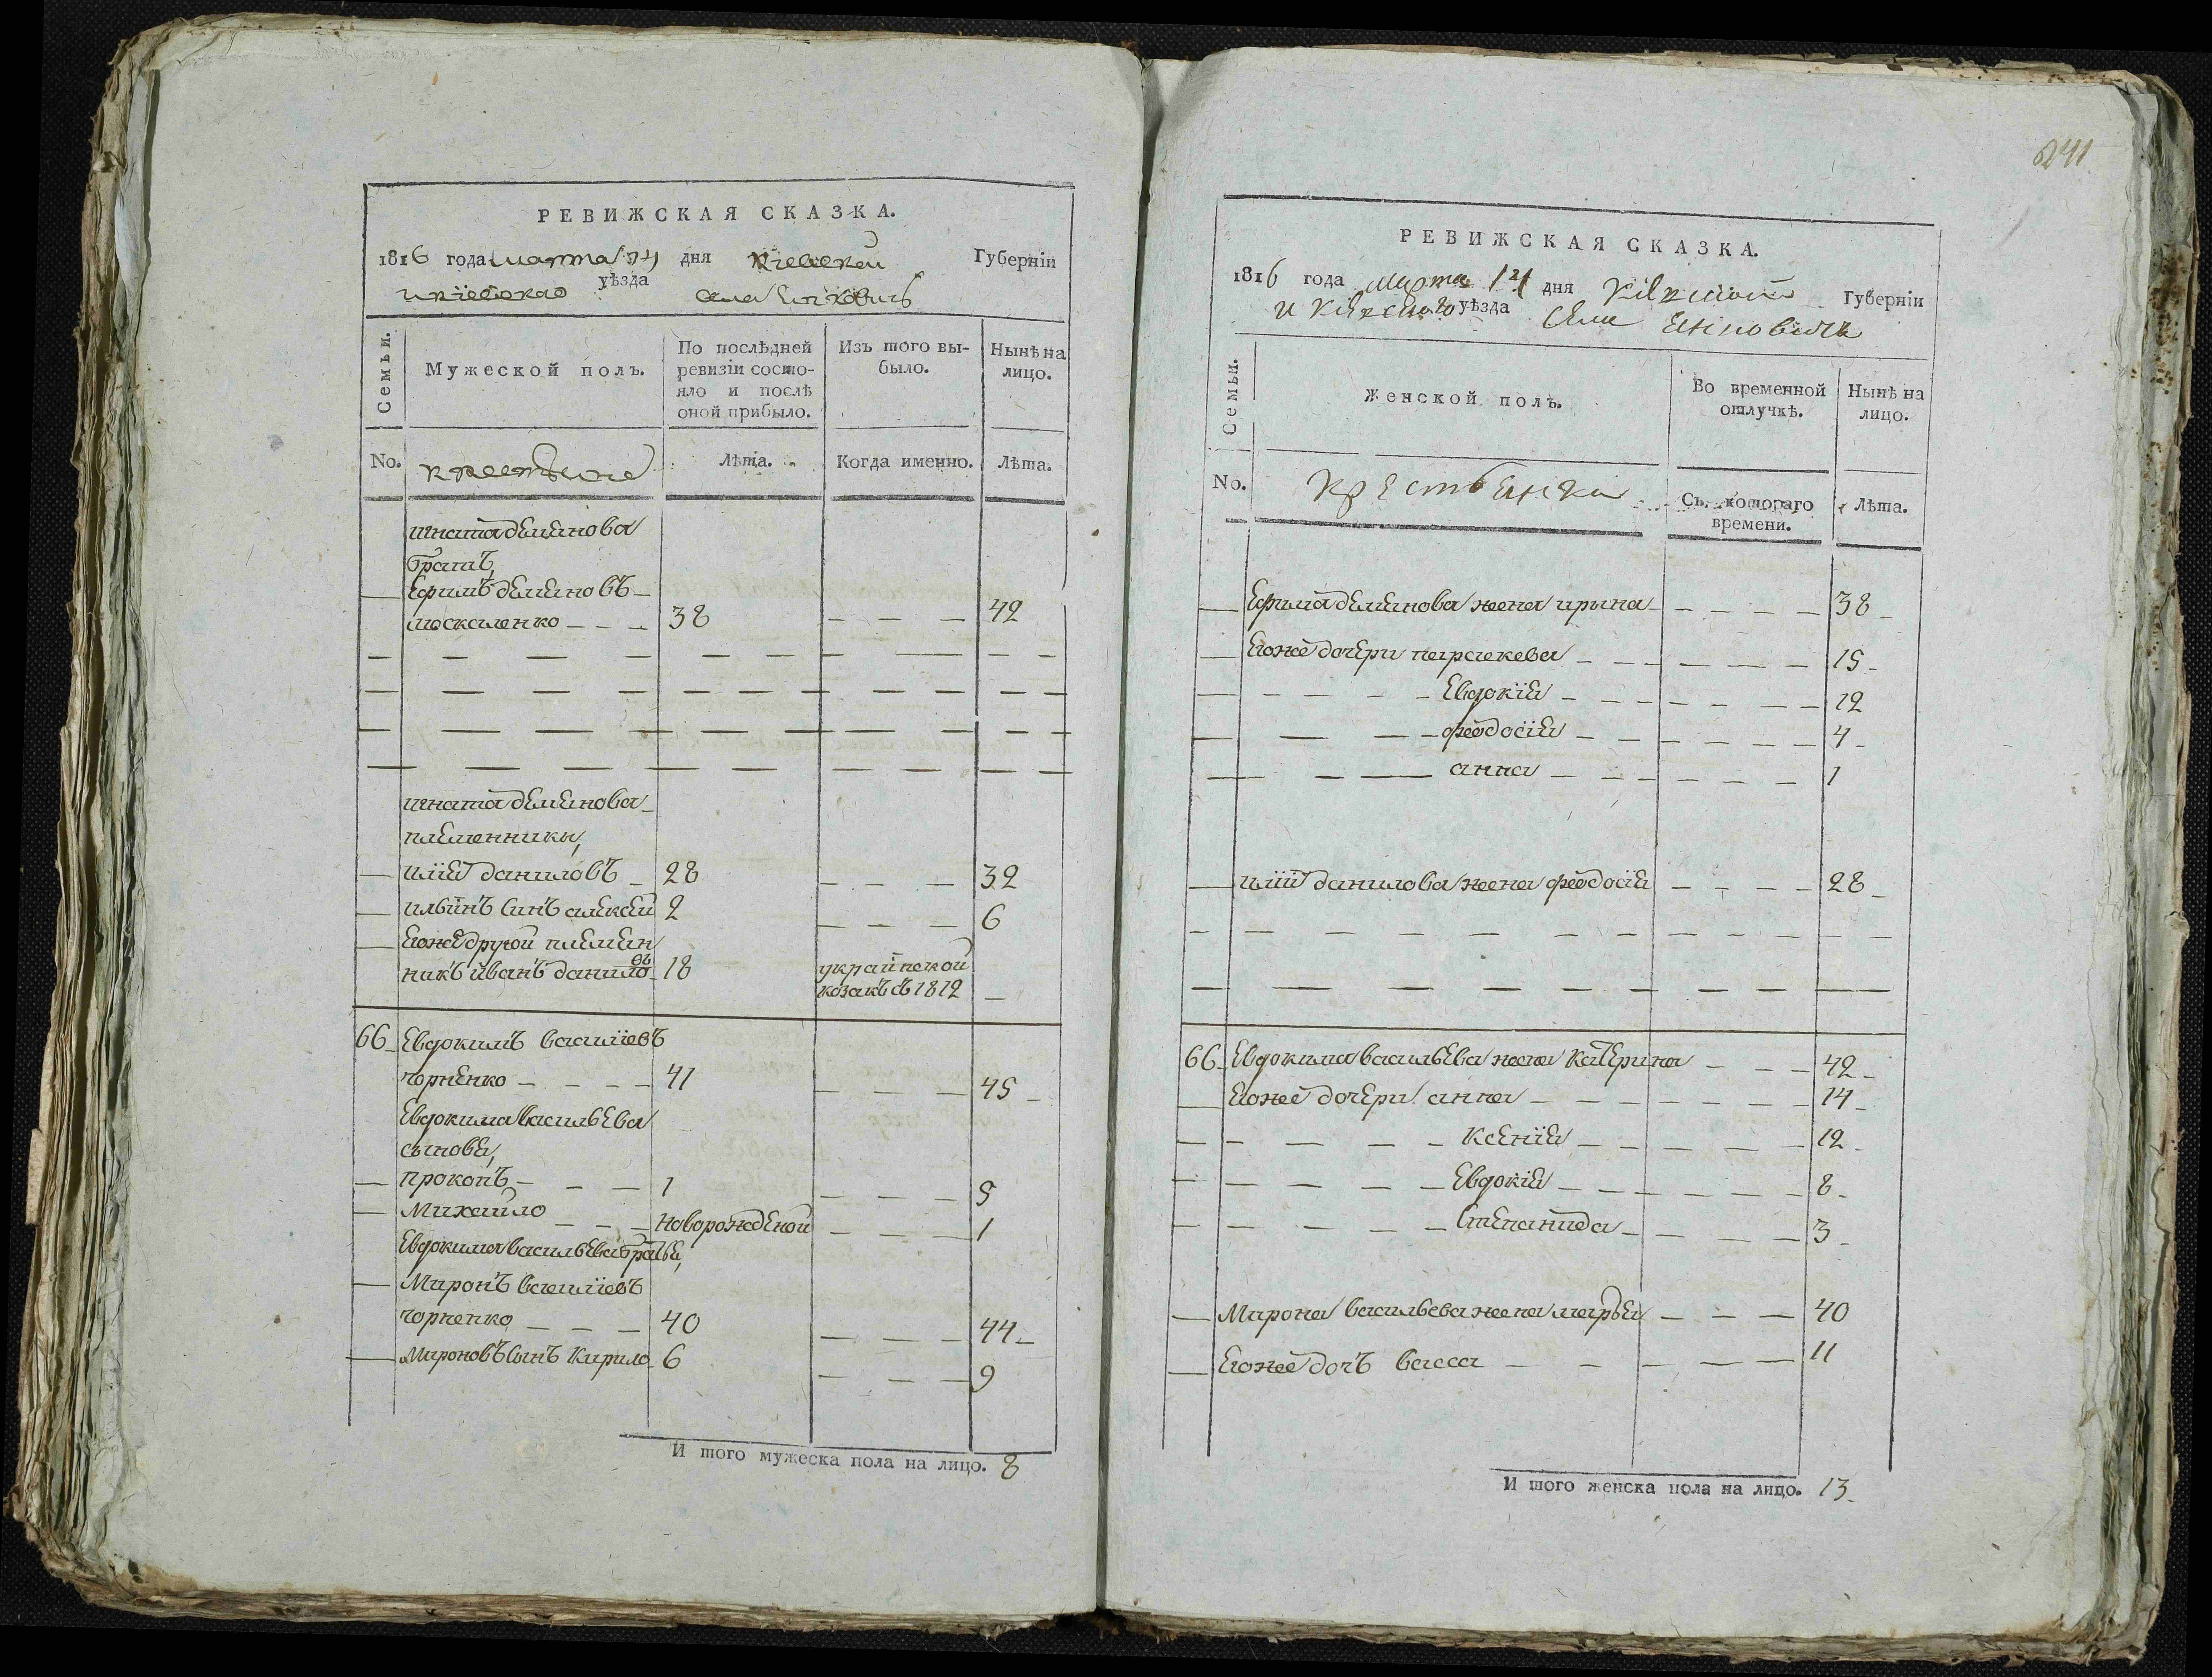 РЕВИЖСКАЯ СКАЗКА.
1816 года марта 14 дня Кіевской Губерніи
и кіевскаго уѣзда села
Семьи.
Мужеской полъ.
По послѣдней ревизіи состояло и послѣ оной прибыло.
Изъ того выбыло.
Нынѣ на лицо.
No.
крестьяне
Лѣта.
Когда именно.
Лѣта.
игната деменова
братъ,
— Ефимъ деменовъ —
москаленко — — — 38 — — — 42
игната деменова
племенники,
— илія даниловъ — 28 — — — 32
— ильинъ синъ алексей 2 — — — 6
— Егоже другой племен
никъ иванъ данило въ 18 украинской
козакъ съ 1812 —
66 Евдокимъ василіевъ
чорненко — — — — 41 — — — 45
Евдокима васильева
сыновья,
— прокопъ — — — 1 — — — 5
— Михайло — — — новорожденой — — — 1
Евдокима васильева братья,
— Миронъ василіевъ
чорненко — — — 40 — — — 44
— Мироновъ сынъ Кирило 6 — — — 9
И того мужеска пола на лицо. 8
241
РЕВИЖСКАЯ СКАЗКА.
1816 года Марта 14 дня Кіевской Губерніи
и Кіевского уѣзда Села
Семьи.
Женской полъ.
Во временной отлучкѣ.
Нынѣ на лицо.
No.
Крестьянки
Съ котораго времени.
Лѣта.
— Ефима деменова жена ирина — — — — 38
— Егоже дочери параскева — — — — 15
— — — Евдокія — — — — 12
— — — феодосія — — — — 4
— — — анна — — — — 1
— иліи данилова жена феодосія — — — — 28
66 Евдокима васильева жена Катерина — — — 42
— Егоже дочери анна — — — — 14
— — — Ксенія — — — — 12
— — — Евдокія — — — — 8
— — — Степанида — — — — 3
— Мирона васильева жена марья — — — 40
— Егоже дочъ васса — — — — 11
И того женска пола на лицо. 13